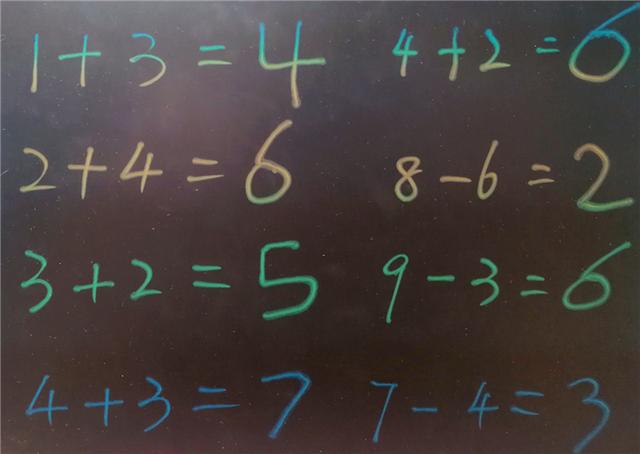 1+3=4 4+2=6
2+4=6 8-6=2
3+2=5 9-3=6
4+3=7 7-4=3